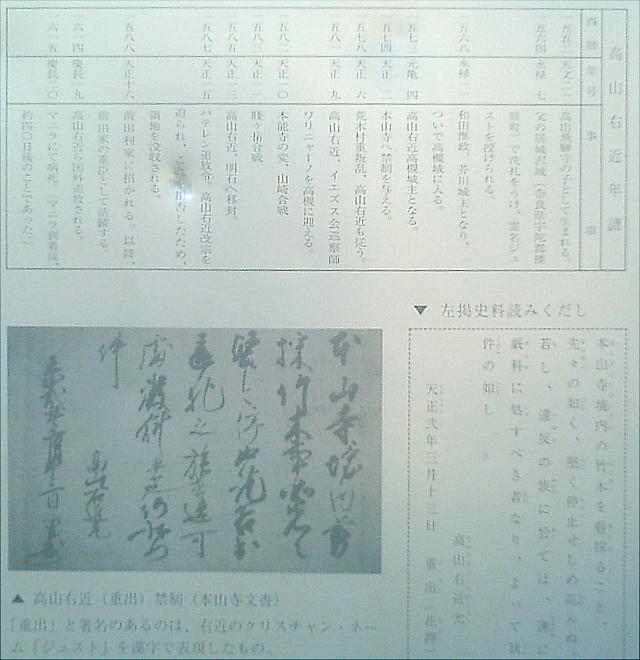 高山右近年譜
西暦 年号 事項
一五五二 天文二一 高山飛騨守の子として生まれる。
一五六四 永禄 七 父の居城沢城（奈良県宇陀郡榛
原町）で洗礼をうけ、霊名ジュ
ストを授けられる。
一五六八 永禄一一 和田惟政、芥川城主となり、
ついで高槻城に入る。
一五七三 元亀 四 高山右近高槻城主となる。
一五七四 天正 二 本山寺へ禁制を与える。
一五七八 天正 六 荒木村重叛乱、高山右近も従う。
一五八一 天正 九 高山右近、イエズス会巡察師
ワリニャーノを高槻に迎える。
一五八二 天正一〇 本能寺の変、山崎合戦
一五八三 天正一一 賤ヶ岳合戦
一五八五 天正一三 高山右近、明石へ移封。
一五八七 天正一五 バテレン追放令、高山右近改宗を
迫られ、これを拒否したため、
領地を没収される。
一五八八 天正十六 前田利家に招かれる。以降、
前田家の重臣として活躍する。
一六一四 慶長一九 高山右近ら国外追放される。
一六一五 慶長二〇 マニラにて病死。（マニラ到着後、
約四〇日後のことであった。）
▼ 左掲史料読みくだし
本山寺境内の竹木を剪採ること、
先々の如く、堅く停止せしめ訖んぬ。
若し、違反の族に於ては、速に
厳科に処すべき者なり、よって状
件の如し
天正弐年三月十三日
高山右近允
重出（花押）
▲ 高山右近（重出）禁制（本山寺文書）
「重出」と署名のあるのは、右近のクリスチャン・ネー
ム「ジュスト」を漢字で表現したもの。